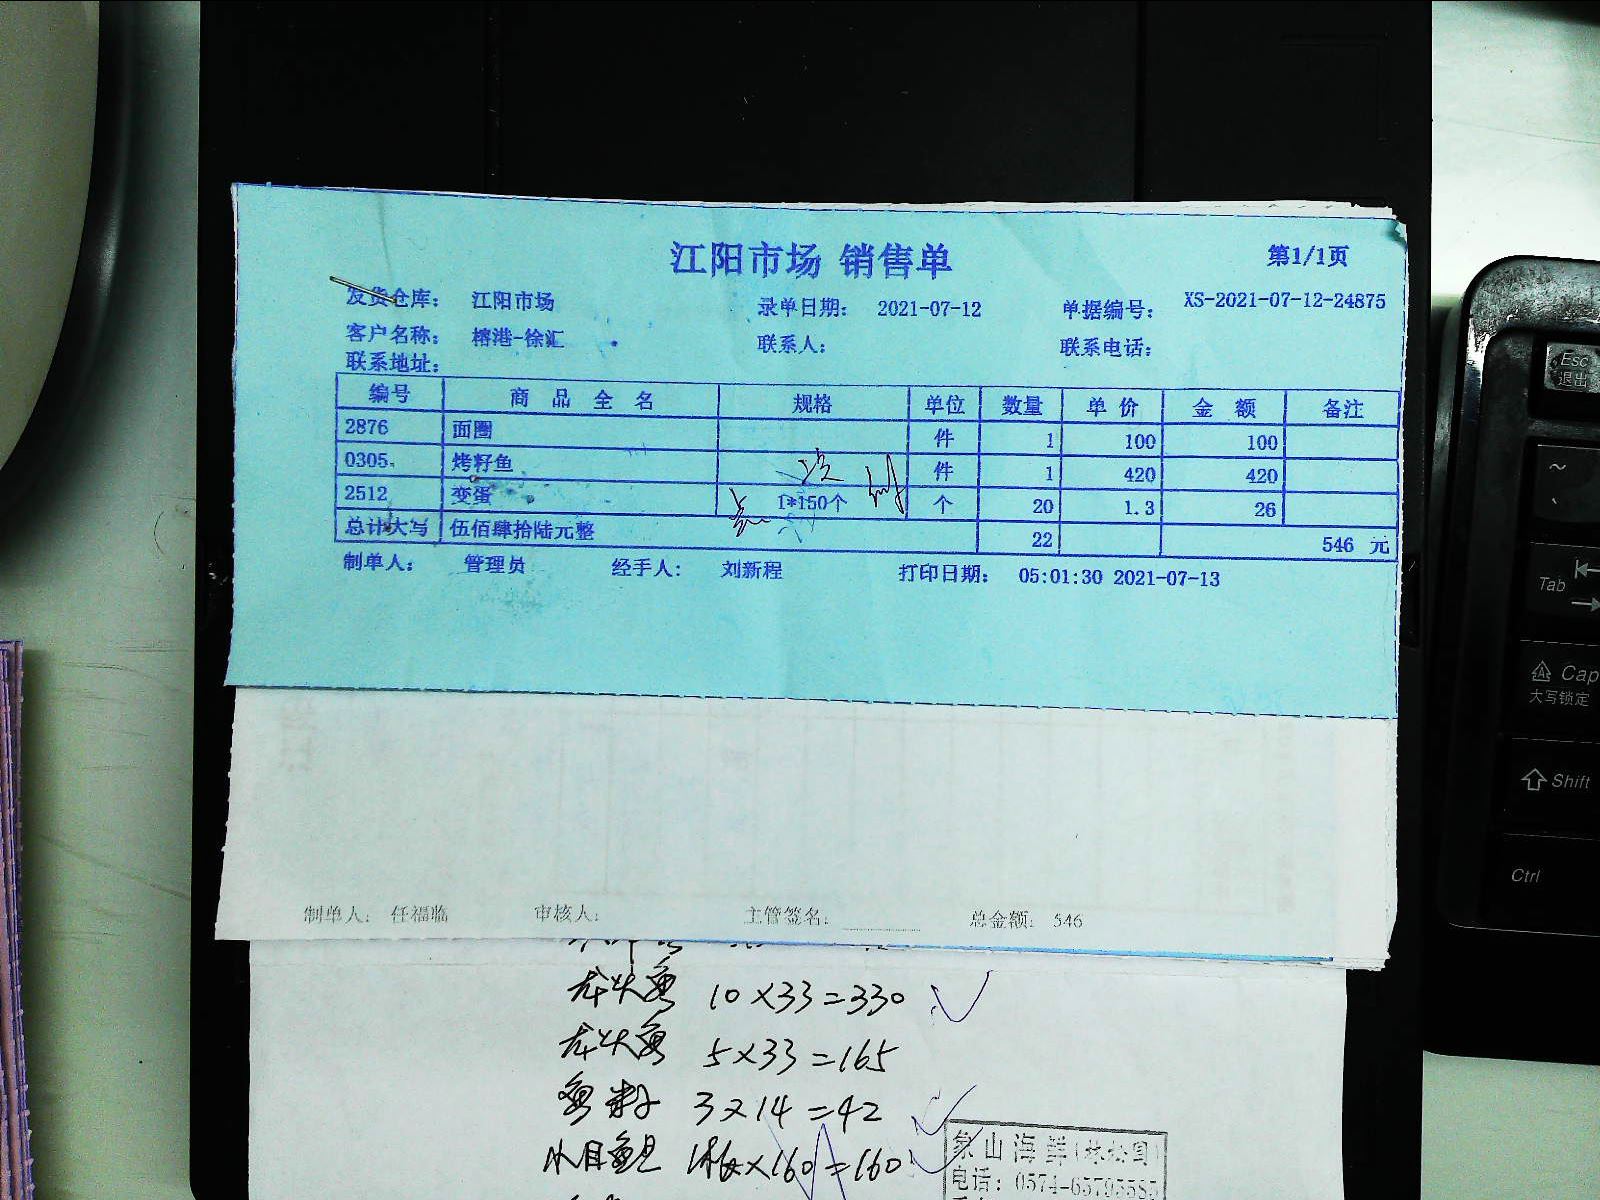 江阳市场 销售单
第1/1页
发货仓库： 江阳市场 录单日期： 2021-07-12 单据编号： XS-2021-07-12-24875
客户名称： 榕港-徐汇 联系人： 联系电话：
联系地址：
编号 商品全名 规格 单位 数量 单价 金额 备注
2876 面圈 件 1 100 100
0305 烤籽鱼 件 1 420 420
2512 变蛋 1*150个 个 20 1.3 26
总计大写 伍佰肆拾陆元整 22 546 元
制单人： 管理员 经手人： 刘新程 打印日期： 05:01:30 2021-07-13
制单人： 任福临 审核人： 主管签名： 总金额： 546
龙头鱼 10×33=330
龙头鱼 5×33=165
鱼籽 3×14=42
×160=160
象山海鲜
电话：0574-65795585
Esc
退出
~
Tab
Cap
大写锁定
Shift
Ctrl